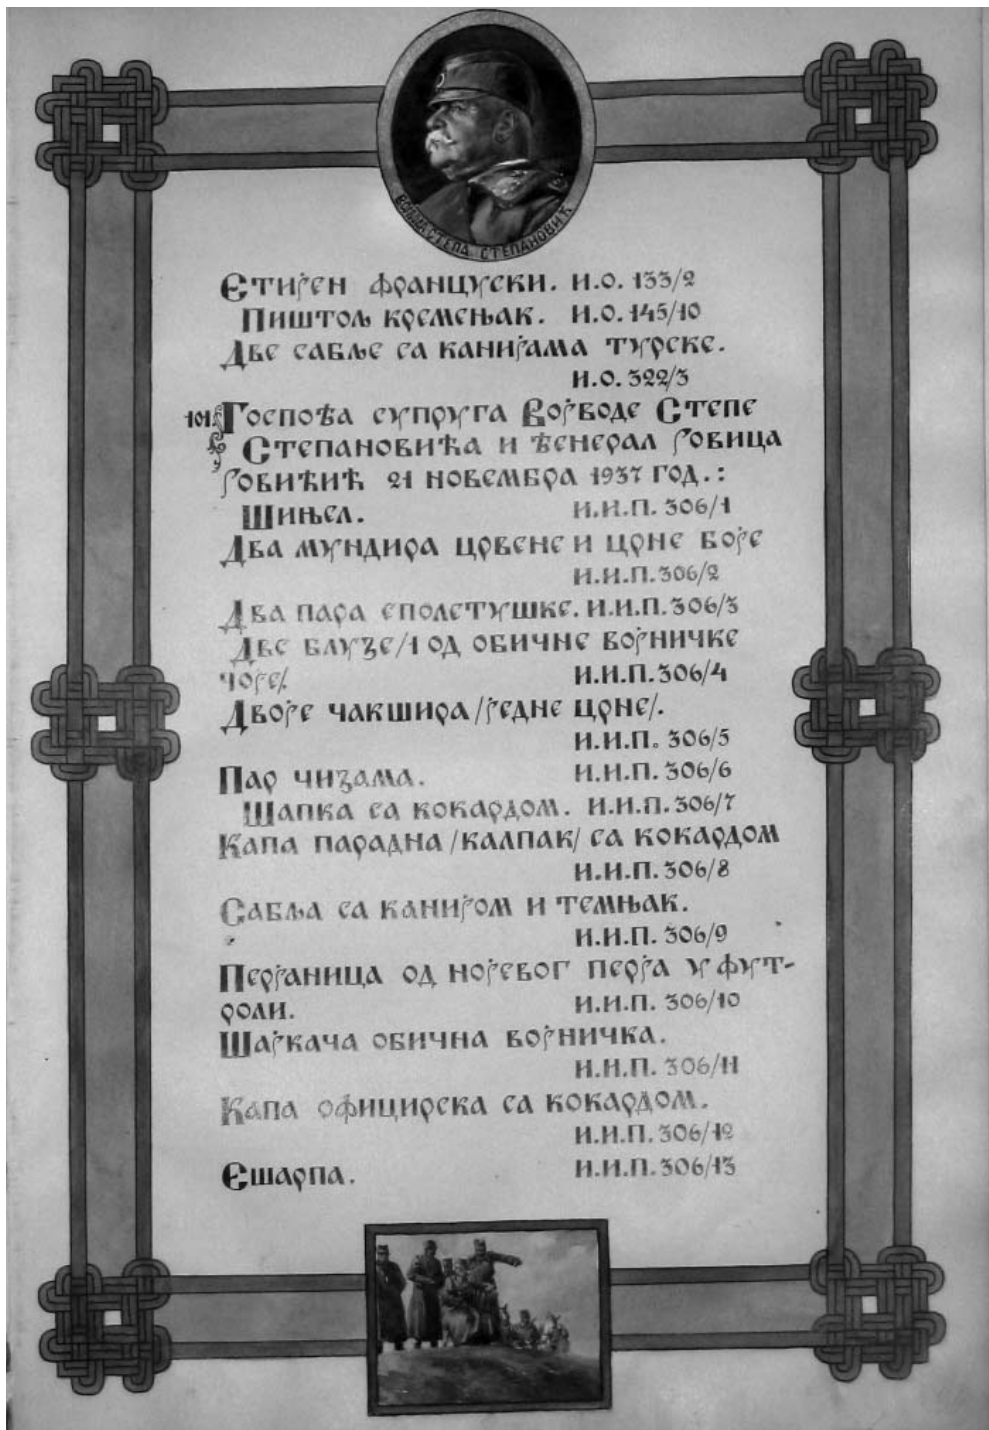 ВОЈВОДА СТЕПА СТЕПАНОВИЋ
Етијен француски. И.О. 133/2
Пиштољ кремењак. И.О. 145/10
Две сабље са канијама турске.
И.О. 322/3
101 Госпођа супруга Војводе Степе
Степановића и ђенерал Јовица
Јовићић 21 новембра 1937 год.:
Шињел. И.И.П. 306/1
Два мундира црвене и црне боје
И.И.П. 306/2
Два пара еполетушке. И.И.П. 306/3
Две блузе/1 од обичне војничке
чоје/. И.И.П. 306/4
Двоје чакшира /једне црне/.
И.И.П. 306/5
Пар чизама. И.И.П. 306/6
Шапка са кокардом. И.И.П. 306/7
Капа парадна /калпак/ са кокардом
И.И.П. 306/8
Сабља са канијом и темњак.
И.И.П. 306/9
Перјаница од нојевог перја у фут-
роли. И.И.П. 306/10
Шајкача обична војничка.
И.И.П. 306/11
Капа официрска са кокардом.
И.И.П. 306/12
Ешарпа. И.И.П. 306/13